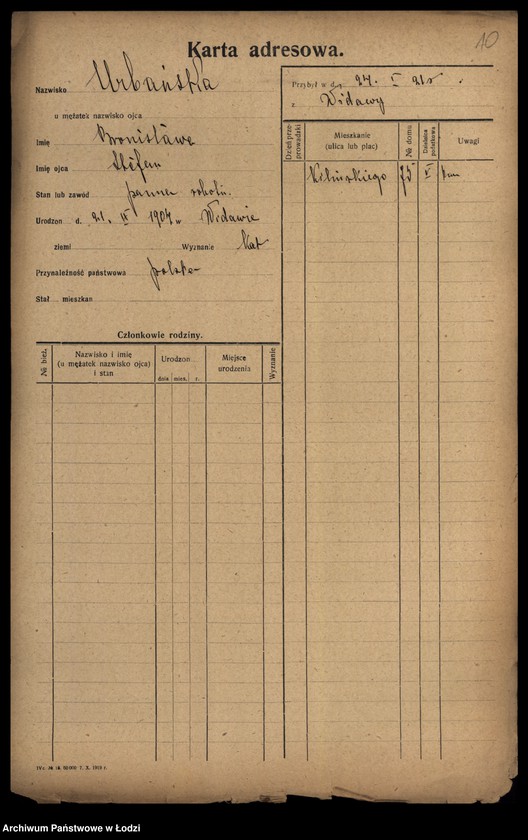 10
Karta adresowa.
Nazwisko Urbańska
u mężatek nazwisko ojca
Imię Bronisława
Imię ojca Stefan
Stan lub zawód panna robotn.
Urodzon d. 21. IV 1904 w Widawie
ziemi Wyznanie Kat
Przynależność państwowa polska
Stał. mieszkan
Członkowie rodziny.
№ bież.
Nazwisko i imię
(u mężatek nazwisko ojca)
i stan
Urodzon
dnia mies. r.
Miejsce
urodzenia
Wyznanie
Przybył w d. 27. I 21 r.
z Widawy
Dzień przeprowadzki
Mieszkanie
(ulica lub plac)
№ domu
Dzielnica
podatkowa
Uwagi
Kilińskiego 75 V
7. X. 1918 r.
Archiwum Państwowe w Łodzi